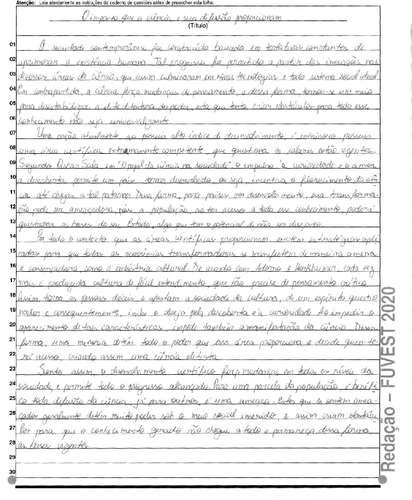 Atenção: Leia atentamente as instruções do caderno de questões antes de preencher esta folha.
O impacto que a ciência e sua difusão proporcionam
(Título)
01 A sociedade contemporânea foi construída baseada em tentativas constantes de
02 aprimorar a existência humana. Tal progresso foi permitido a partir das inovações nas
03 diversas áreas da ciência, que assim culminaram em novas tecnologias e todo sistema social atual.
04 Em contrapartida, a ciência força mudanças de pensamento, e dessa forma, torna-se um meio
05 para desestabilizar a elite detentora do poder, esta que tenta criar obstáculos para todo esse
06 conhecimento não seja universalizante.
07 Uma nação atualmente ao possuir alto índice de desenvolvimento, é intrínseco possuir
08 uma área científica extremamente competente, que questiona os valores então vigentes.
09 Segundo em "O papel da ciência na sociedade", o impulso à curiosidade e o amor
10 a descoberta permite um país torna desenvolvido, ou seja, incentiva o florescimento da ciên-
11 cia até chegar a tal patamar. Dessa forma, para países em desenvolvimento, essa transforma-
12 ção pode ser ameaçadora, pois a população, ao ter acesso a todo esse conhecimento, poderá
13 questionar as bases do seu Estado, algo que tem o potencial de não ser desejado.
14 Em todo o contexto que as áreas científicas proporcionam, existem
15 para que todas as ocorrências transformadoras se manifestem de maneira amena
16 e conservadora, como a indústria cultural. De acordo com Adorno e Horkheimer, cada vez
17 mais é produzida cultura de fácil entendimento, que não precise de pensamento crítico.
18 torna as pessoas dóceis e afastam a sociedade da cultura, de um espírito questio-
19 nador e consequentemente, inibe o desejo pela descoberta e a curiosidade. Ao impedir o
20 aparecimento destas características, impede também a manifestação da ciência. Dessa
21 forma, uma minoria detém todo o poder que essa área proporciona e decide quem te-
22 rá acesso, criando assim uma ciência elitista.
23 Sendo assim, o desenvolvimento científico força mudanças em todos os níveis da
24 sociedade, e permite todo o progresso alcançado. Para uma parcela da população, é benéfi-
25 co toda difusão da ciência, já para outros, é uma ameaça. Estes que se sentem amea-
26 çados geralmente detêm muito poder sob o meio social inserido, e assim criam obstácu-
27 los para que o conhecimento gerado não chegue a todos e permaneça dessa forma,
28 as bases vigentes.
29
30
Redação – FUVEST 2020